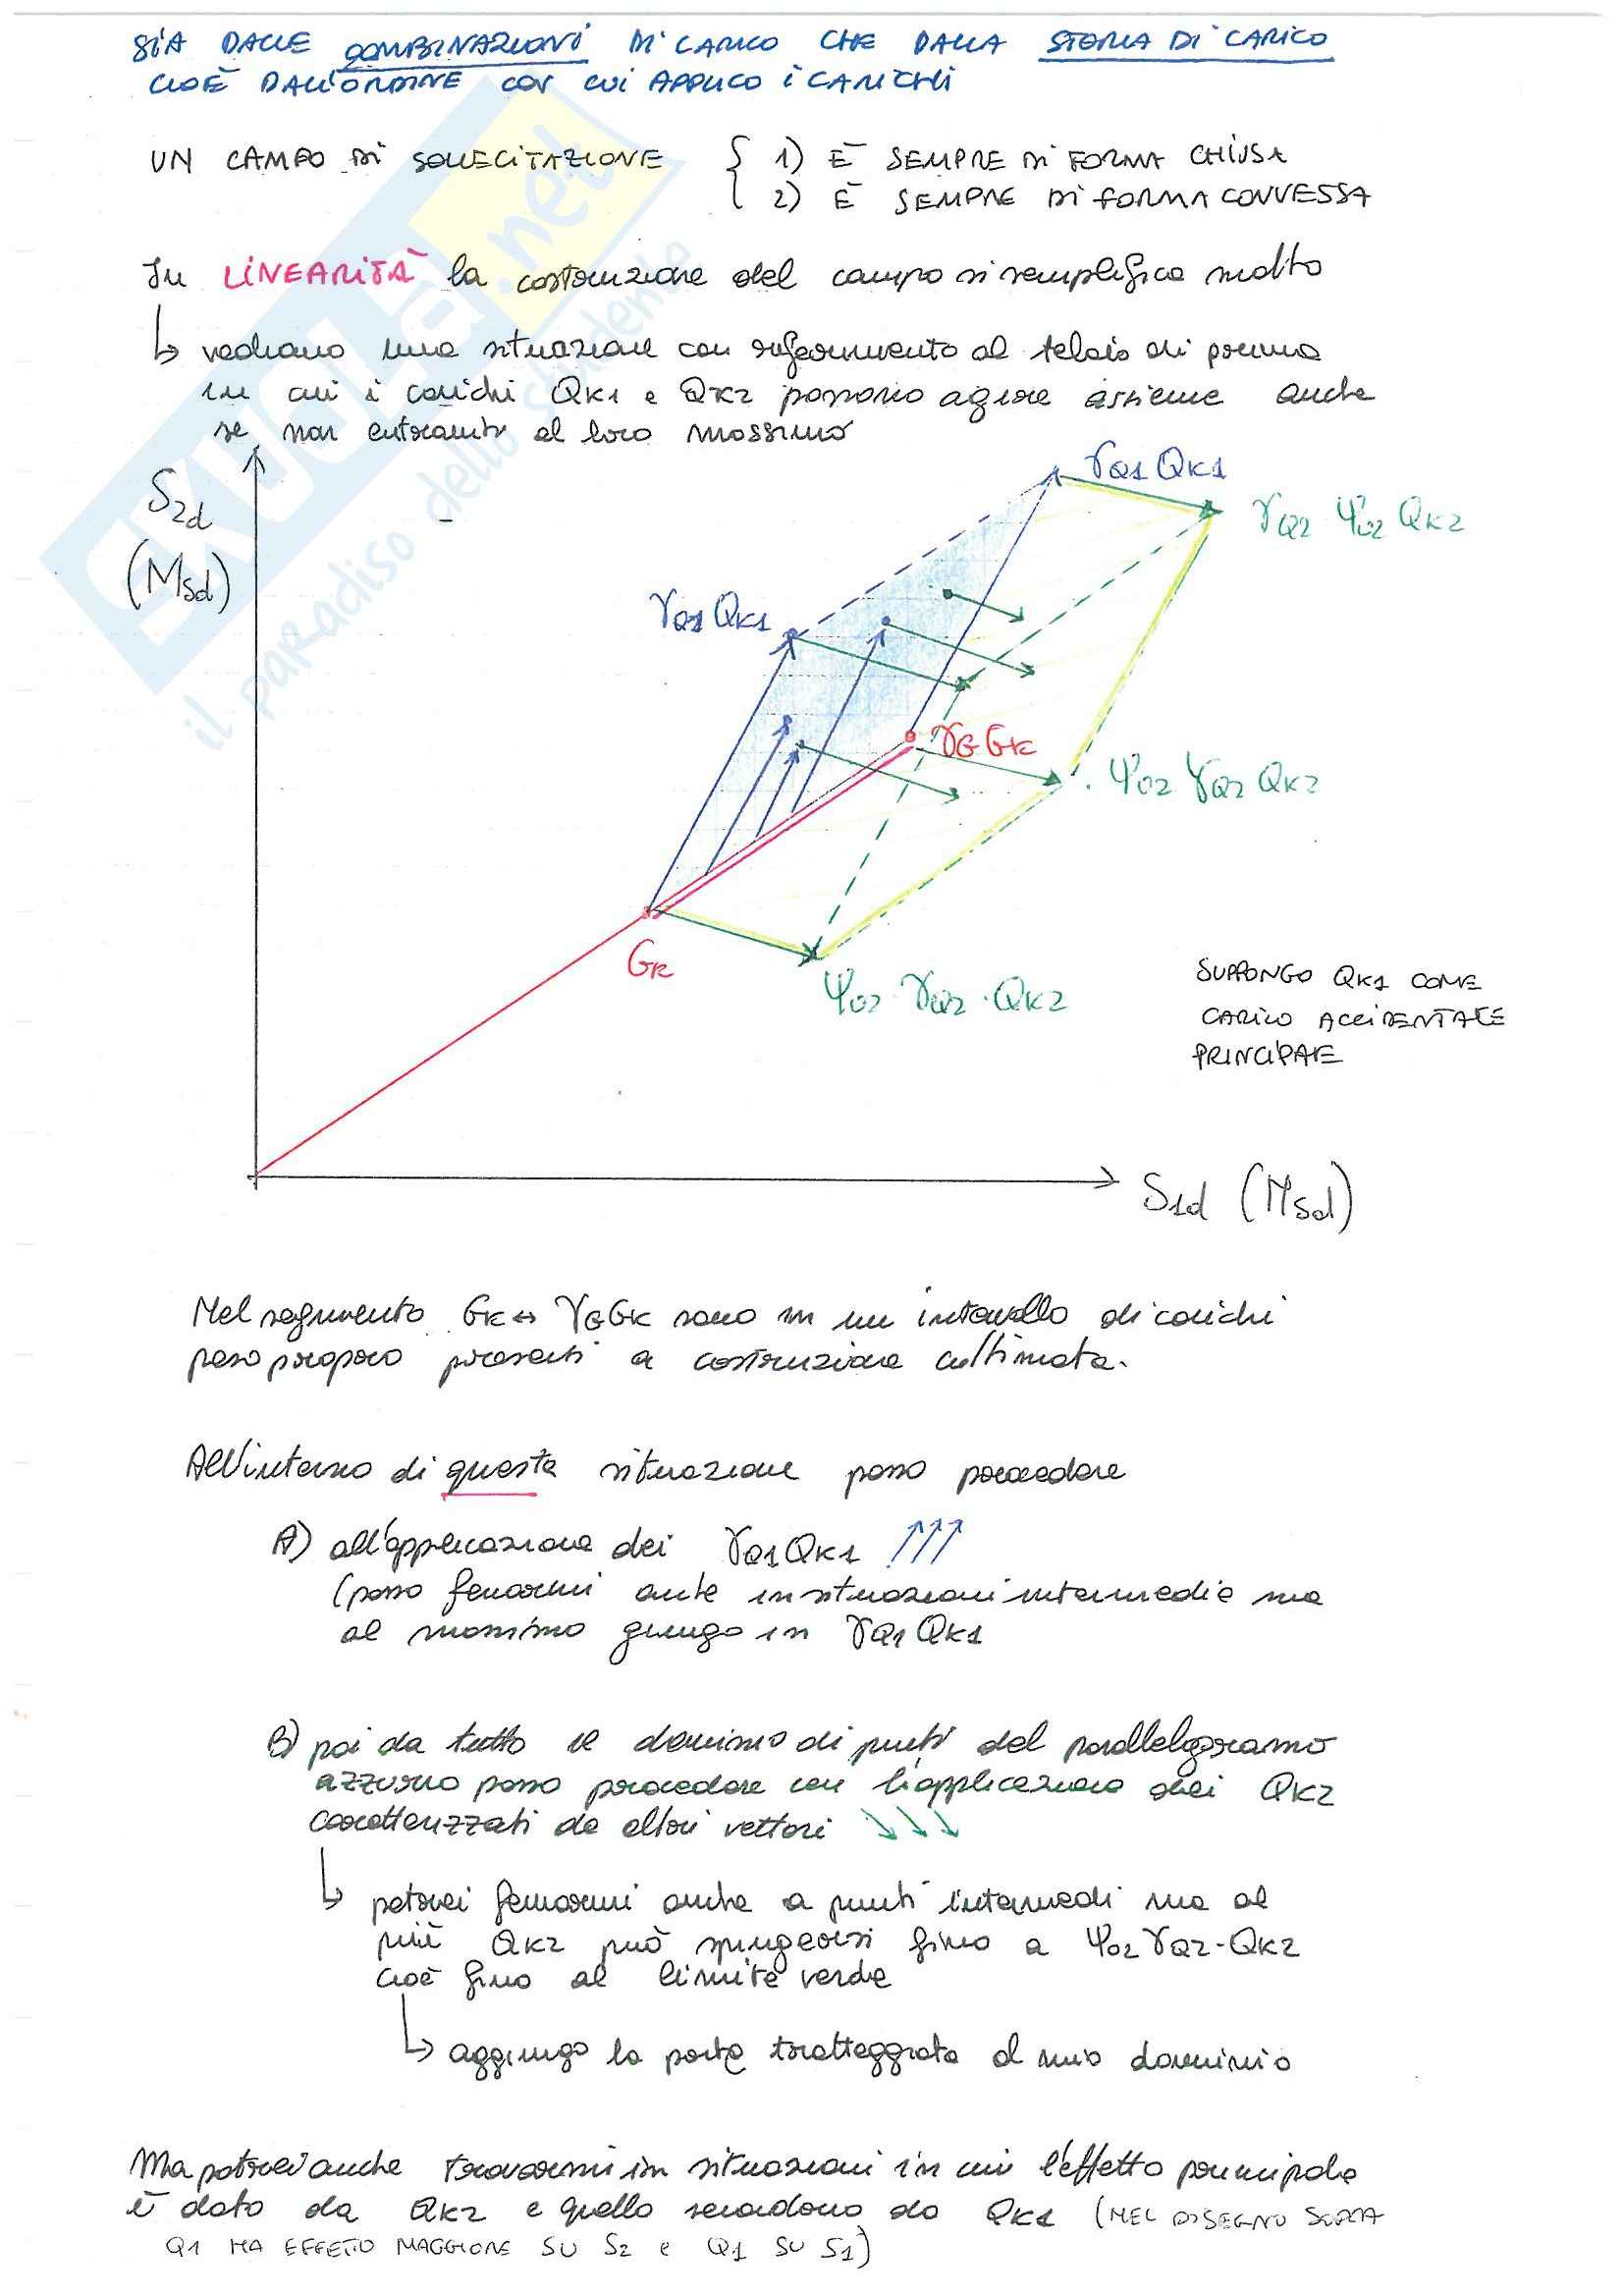 SIA DALLE COMBINAZIONI DI CARICO CHE DALLA STORIA DI CARICO
CIOÈ DALL'ORDINE CON CUI APPLICO I CARICHI
UN CAMPO DI SOLLECITAZIONE { 1) È SEMPRE DI FORMA CHIUSA
2) È SEMPRE DI FORMA CONVESSA
In LINEARITÀ la costruzione del campo si semplifica molto
↳ vediamo una situazione con riferimento al telaio di prima
in cui i carichi QK1 e QK2 possono agire assieme anche
se non entrambi al loro massimo
S2d
(MSd)
γQ1 QK1
γQ2 ψ02 QK2
γQ1 QK1
γG GK
ψ02 γQ2 QK2
GK
ψ02 γQ2 · QK2
SUPPONGO QK1 COME
CARICO ACCIDENTALE
PRINCIPALE
S1d (MSd)
Nel segmento GK ↔ γGGK sono in un intervallo di carichi
peso proprio presenti a costruzione ultimata.
All'interno di questa situazione posso procedere
A) all'applicazione dei γQ1QK1 ↑↑↑
(posso fermarmi anche in situazioni intermedie ma
al massimo giungo in γQ1QK1
B) poi da tutto il dominio di punti del parallelogramma
azzurro posso procedere con l'applicazione dei QK2
caratterizzati da altri vettori ↘↘↘
↳ potrei fermarmi anche a punti intermedi ma al
più QK2 può spingersi fino a ψ02γQ2·QK2
cioè fino al limite verde
↳ aggiungo la parte tratteggiata al mio dominio
Ma potrei anche trovarmi in situazioni in cui l'effetto principale
è dato da QK2 e quello secondario da QK1 (NEL DISEGNO SOPRA
Q1 HA EFFETTO MAGGIORE SU S2 e Q1 SU S1)
SKUOLA.net
il paradiso dello studente